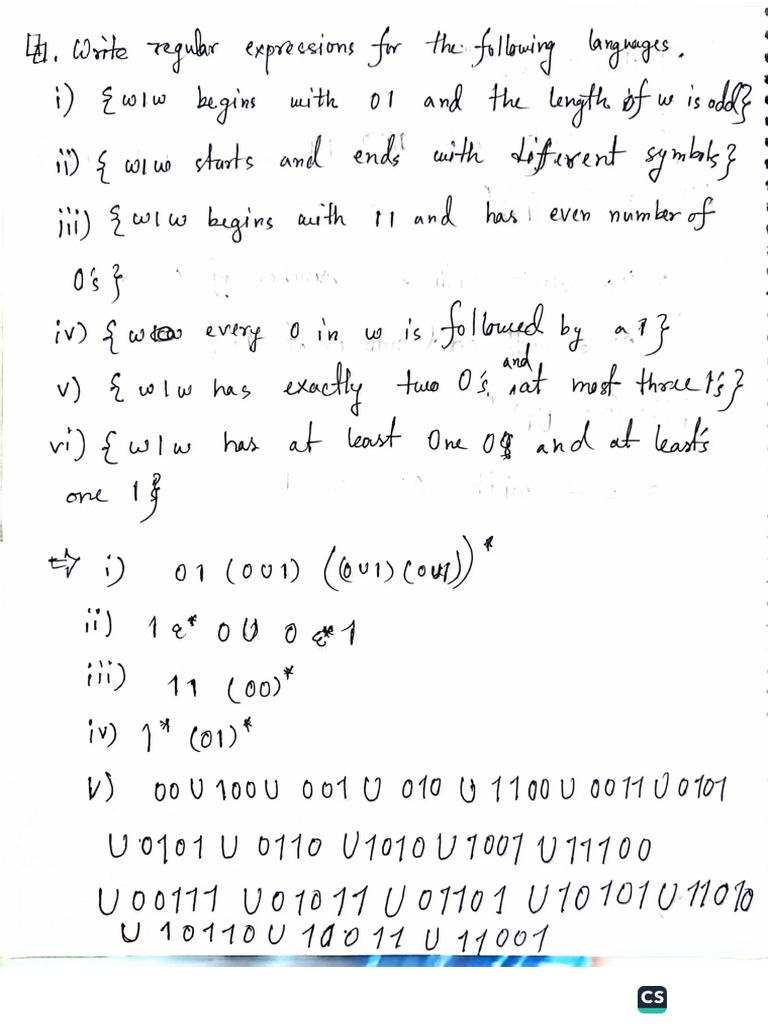 4. Write regular expressions for the following languages.
i) {w|w begins with 01 and the length of w is odd}
ii) {w|w starts and ends with different symbols}
iii) {w|w begins with 11 and has even number of
0's}
iv) {w every 0 in w is followed by a 1}
v) {w|w has exactly two 0's and at most three 1's}
vi) {w|w has at least one 0 and at least's
one 1}
⇒ i) 01 (0∪1) ((0∪1)(0∪1))*
ii) 1 ε* 0 ∪ 0 ε* 1
iii) 11 (00)*
iv) 1* (01)*
V) 00 ∪ 100 ∪ 001 ∪ 010 ∪ 1100 ∪ 0011 ∪ 0101
∪ 0101 ∪ 0110 ∪ 1010 ∪ 1001 ∪ 11100
∪ 00111 ∪ 01011 ∪ 01101 ∪ 10101 ∪ 11010
∪ 10110 ∪ 10011 ∪ 11001
CS